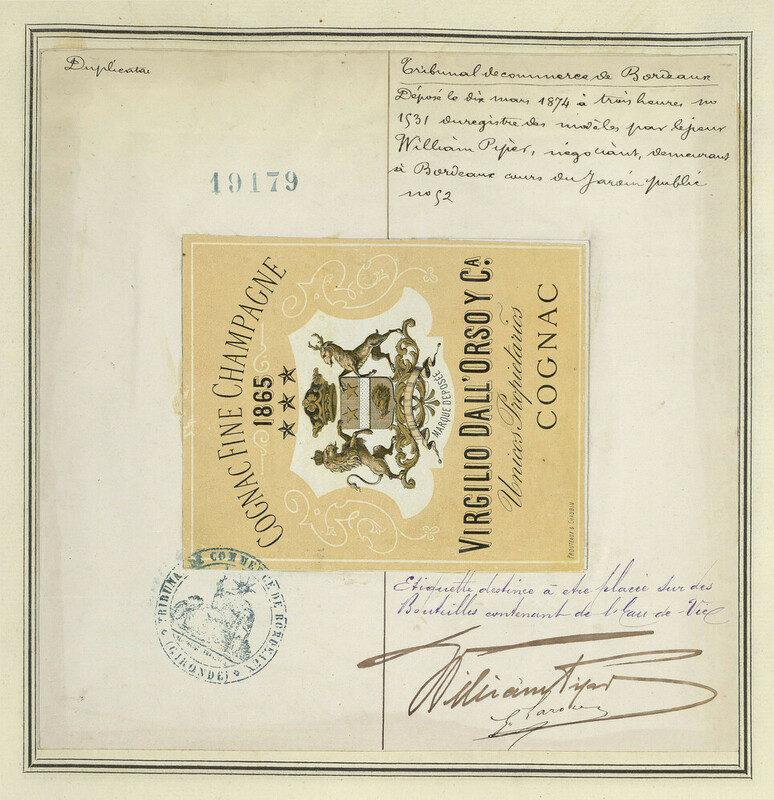 Duplicata
Tribunal de commerce de Bordeaux
Déposé le dix mars 1874 à trois heures no
1531 du registre des modèles par le sieur
William Pyper, négociant, demeurant
à Bordeaux cours du Jardin public
no 52
19179
COGNAC FINE CHAMPAGNE
1865
MARQUE DÉPOSÉE
VIRGILIO DALL'ORSO Y CA.
Unicos Propietarios
COGNAC
TRIBUNAL DE COMMERCE DE BORDEAUX
(GIRONDE)
Etiquette destinée à etre placée sur des
Bouteilles contenant de l'Eau-de-Vie
William Pyper